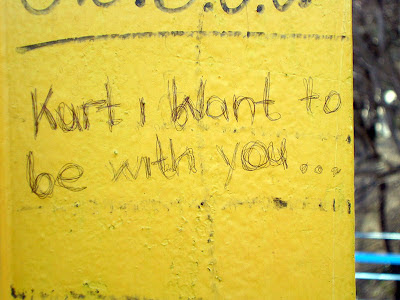 Kurt i Want to
be with you...